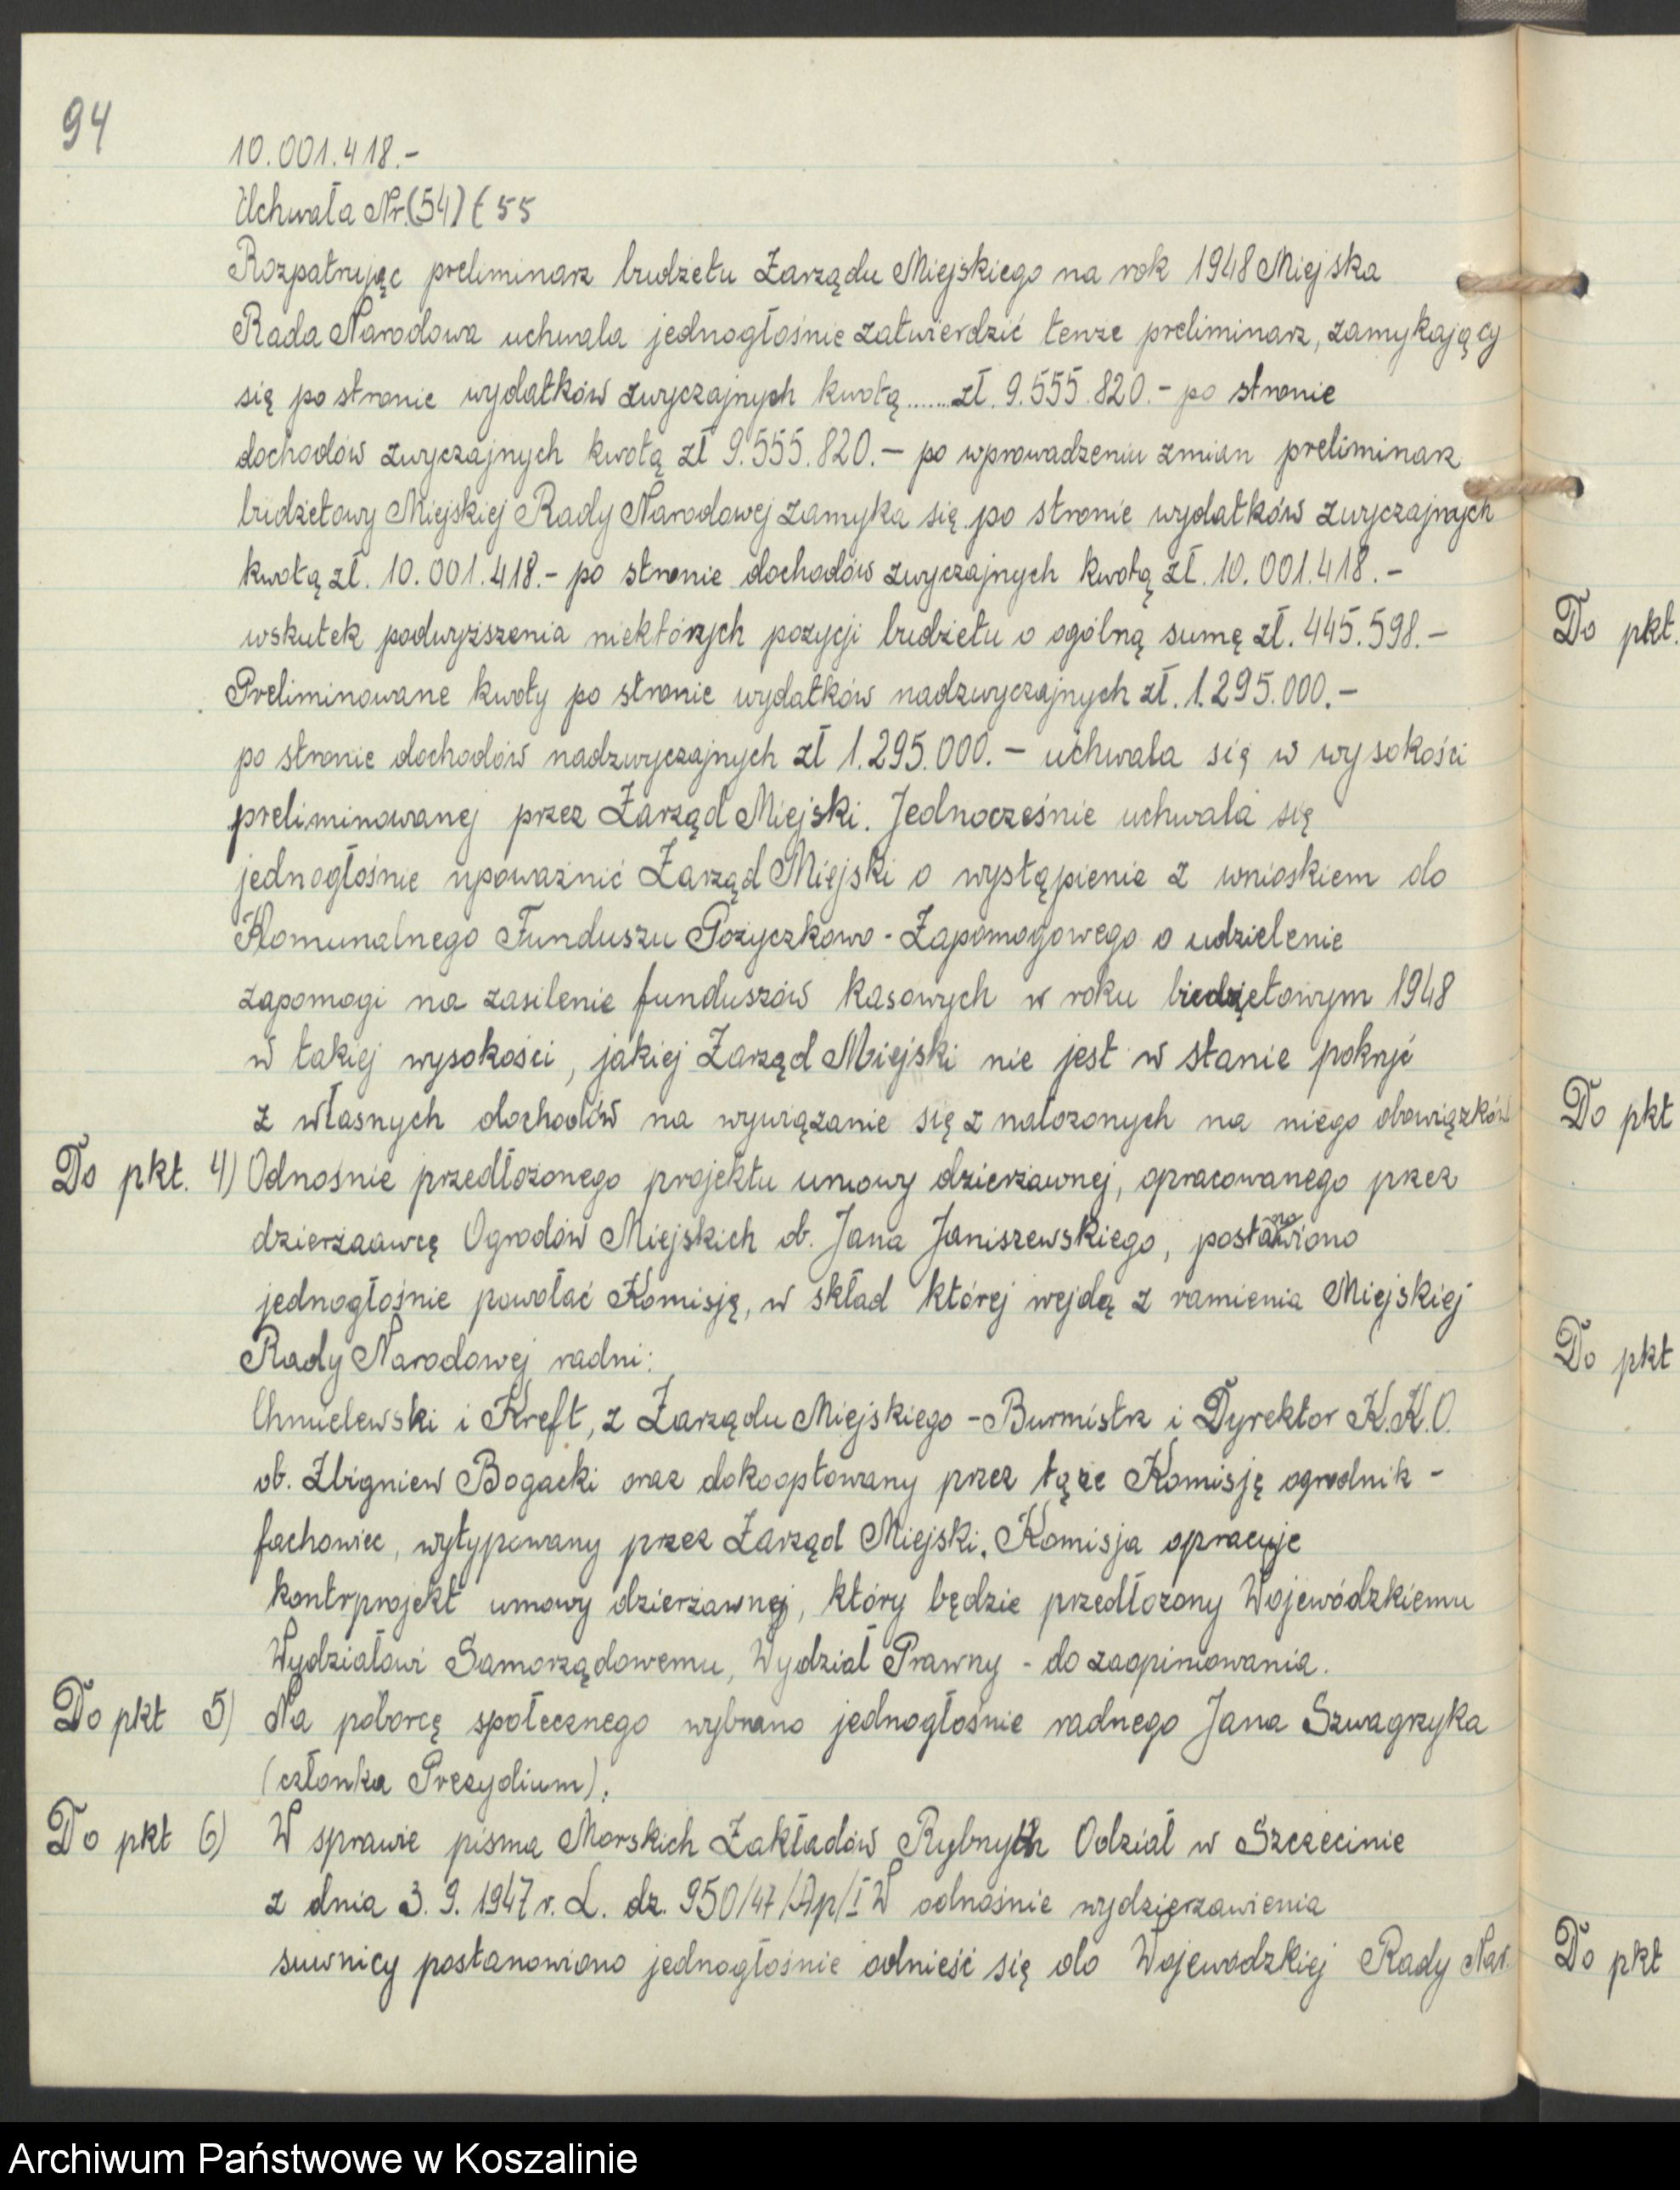 94
10.001.418.-
Uchwała Nr.(54) ( 55
Rozpatrując preliminarz budżetu Zarządu Miejskiego na rok 1948 Miejska
Rada Narodowa uchwala jednogłośnie zatwierdzić tenże preliminarz, zamykający
się po stronie wydatków zwyczajnych kwotą ...... zł. 9.555.820.- po stronie
dochodów zwyczajnych kwotą zł 9.555.820.- po wprowadzeniu zmian preliminarz
budżetowy Miejskiej Rady Narodowej zamyka się po stronie wydatków zwyczajnych
kwotą zł. 10.001.418.- po stronie dochodów zwyczajnych kwotą zł. 10.001.418.-
wskutek podwyższenia niektórych pozycji budżetu o ogólną sumę zł. 445.598.-
Preliminowane kwoty po stronie wydatków nadzwyczajnych zł. 1.295.000.-
po stronie dochodów nadzwyczajnych zł 1.295.000.- uchwala się w wysokości
preliminowanej przez Zarząd Miejski. Jednocześnie uchwala się
jednogłośnie upoważnić Zarząd Miejski o wystąpienie z wnioskiem do
Komunalnego Funduszu Pożyczkowo-Zapomogowego o udzielenie
zapomogi na zasilenie funduszów kasowych w roku budżetowym 1948
w takiej wysokości, jakiej Zarząd Miejski nie jest w stanie pokryć
z własnych dochodów na wywiązanie się z nałożonych na niego obowiązków
Do pkt. 4) Odnośnie przedłożonego projektu umowy dzierżawnej, opracowanego przez
dzierżaawcę Ogrodów Miejskich ob. Jana Janiszewskiego, postanowiono
jednogłośnie powołać Komisję, w skład której wejdą z ramienia Miejskiej
Rady Narodowej radni:
Chmielewski i Kreft, z Zarządu Miejskiego - Burmistrz i Dyrektor K.K.O.
ob. Zbigniew Bogacki oraz dokooptowany przez tąże Komisję ogrodnik -
fachowiec, wytypowany przez Zarząd Miejski. Komisja opracuje
kontrprojekt umowy dzierżawnej, który będzie przedłożony Wojewódzkiemu
Wydziałowi Samorządowemu, Wydział Prawny - do zaopiniowania.
Do pkt 5) Na poborcę społecznego wybrano jednogłośnie radnego Jana Szwagrzyka
(członka Prezydium).
Do pkt 6) W sprawie pisma Morskich Zakładów Rybnych Odział w Szczecinie
z dnia 3.9.1947 r. L. dz. 950/47/Ap/I W odnośnie wydzierżawienia
suwnicy postanowiono jednogłośnie odnieść się do Wojewódzkiej Rady Nar.
Do pkt.
Do pkt
Do pkt
Do pkt
Archiwum Państwowe w Koszalinie